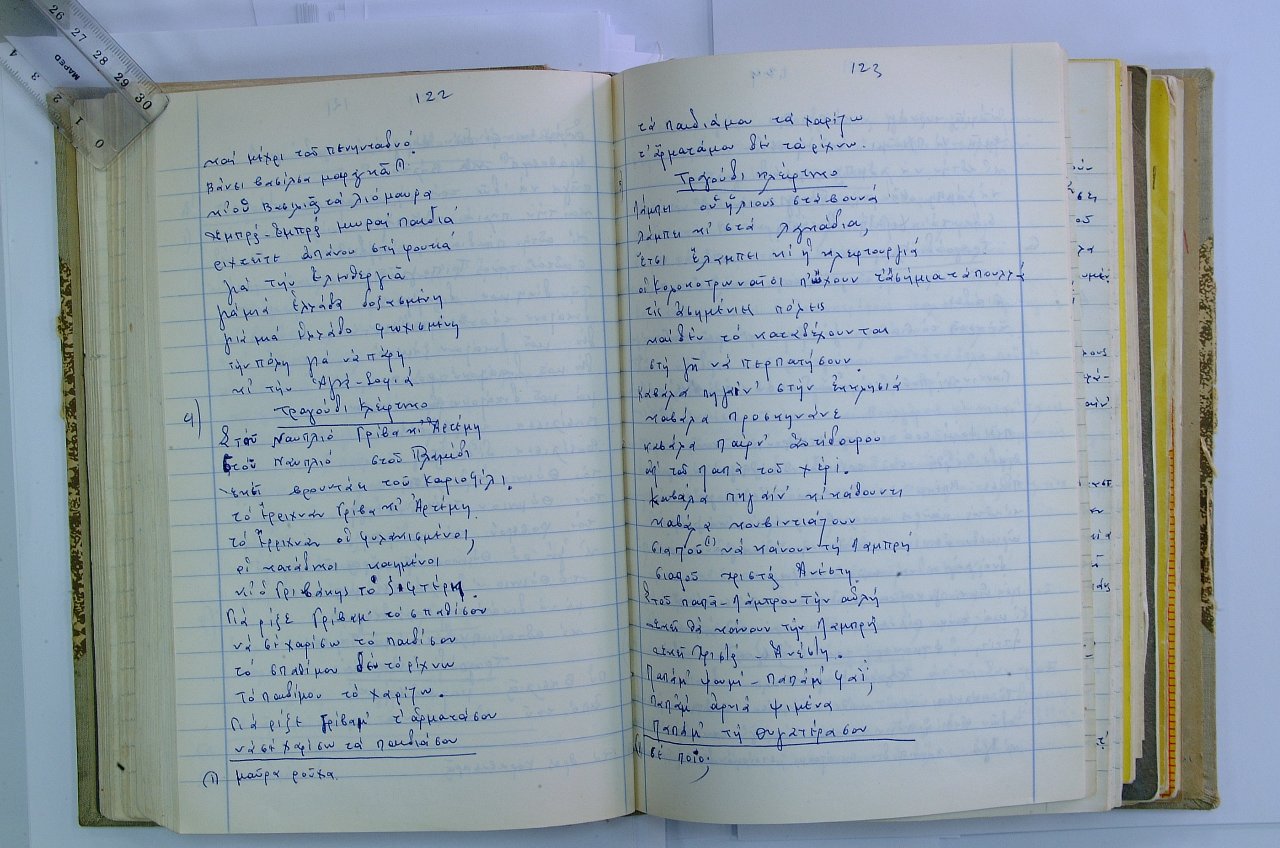 122
καί μέχρι τοῦ πενηνταδυό.
βάνει βασίλσα μαργκᾶ (1)
κι' οὑ βασιλιᾶς τά λιόμαυρα
Ἐμπρέ - Ἐμπρέ μωραί παιδιά
ριχτεῖτε ἀπάνου στή φουτιά
γιά τήν Ἐλευθεργιά
γιά μιά Ἑλλάδα δοξασμένη
γιά μιά Ἑλλάδα φτωχισμένη
τήν πόλη γιά νά πάρη
κι' τήν Ἁγιά-Σοφιά
9) Τραγούδι Κλέφτικο
Στοὺ Ναύπλιο Γρίβα κι' Ἀρτέμη
στοὺ Ναύπλιο στοὺ Παλαμίδι
ἐκεῖ βρουντάει τοὺ καριοφίλι.
τὄρριχναν Γρίβα κι' Ἀρτέμη
τὄρριχναν οἱ φυλακισμένοι,
οἱ κατάδικοι καημένοι
κι' ὁ Γριβάκης τὸ ξιφτέρι.
Γιά ρίξε Γρίβαμ' τό σπαθίσου
νά σέ χαρίσω τό παιδίσου
τό σπαθίμου δέν τό ρίχνω
Τό παιδίμου τό χαρίζω.
Γιά ρίξε Γρίβαμ' τ' ἄρματάσου
νά σέ χαρίσω τά παιδιάσου
(1) μαῦρα ροῦχα
123
τά παιδιάμου τά χαρίζω
τ' ἄρματάμου δέν τά ρίχνω.
Τραγούδι κλέφτικο
Λάμπει οὑ ἥλιους στά βουνά
λάμπει κι' στά λαγκάδια,
ἔτσι ἔλαμπει κι' ἡ κλεφτουργιά
οἱ Κολοκοτρωναῖοι π' ὤχουν τ' ἀσήμια τά πουλλά
τίς ἀσημένιες πάλες
καί δέν τό καταδέχουνται
στή γῆ νά περπατήσουν.
καβάλα πηγαίν' στήν ἐκκλησιά
καβάλα προσκηνᾶνε
καβάλα παίρν' ἀντίδουρου
ἀπ' τοῦ παπᾶ τοῦ χέρι.
Καβάλα πηγαίν' κι' κάθουντι
καβάλα κουβιντιάζουν
σιαποῦ (1) νά κάνουν τή Λαμπρή
σιαποῦ Χριστός Ἀνέστη.
Στοῦ παπᾶ-Λάμπρου τήν αὐλή
ἐκεῖ θά κάνουν τήν Λαμπρή
ἐκεῖ Χριστός - Ἀνέστη.
Παπάμ' ψουμί - παπάμ' φαΐ,
Παπάμ' ἀρνιά ψιμένα
Παπάμ' τή θυγατέρασου
(1) σέ ποῖο;